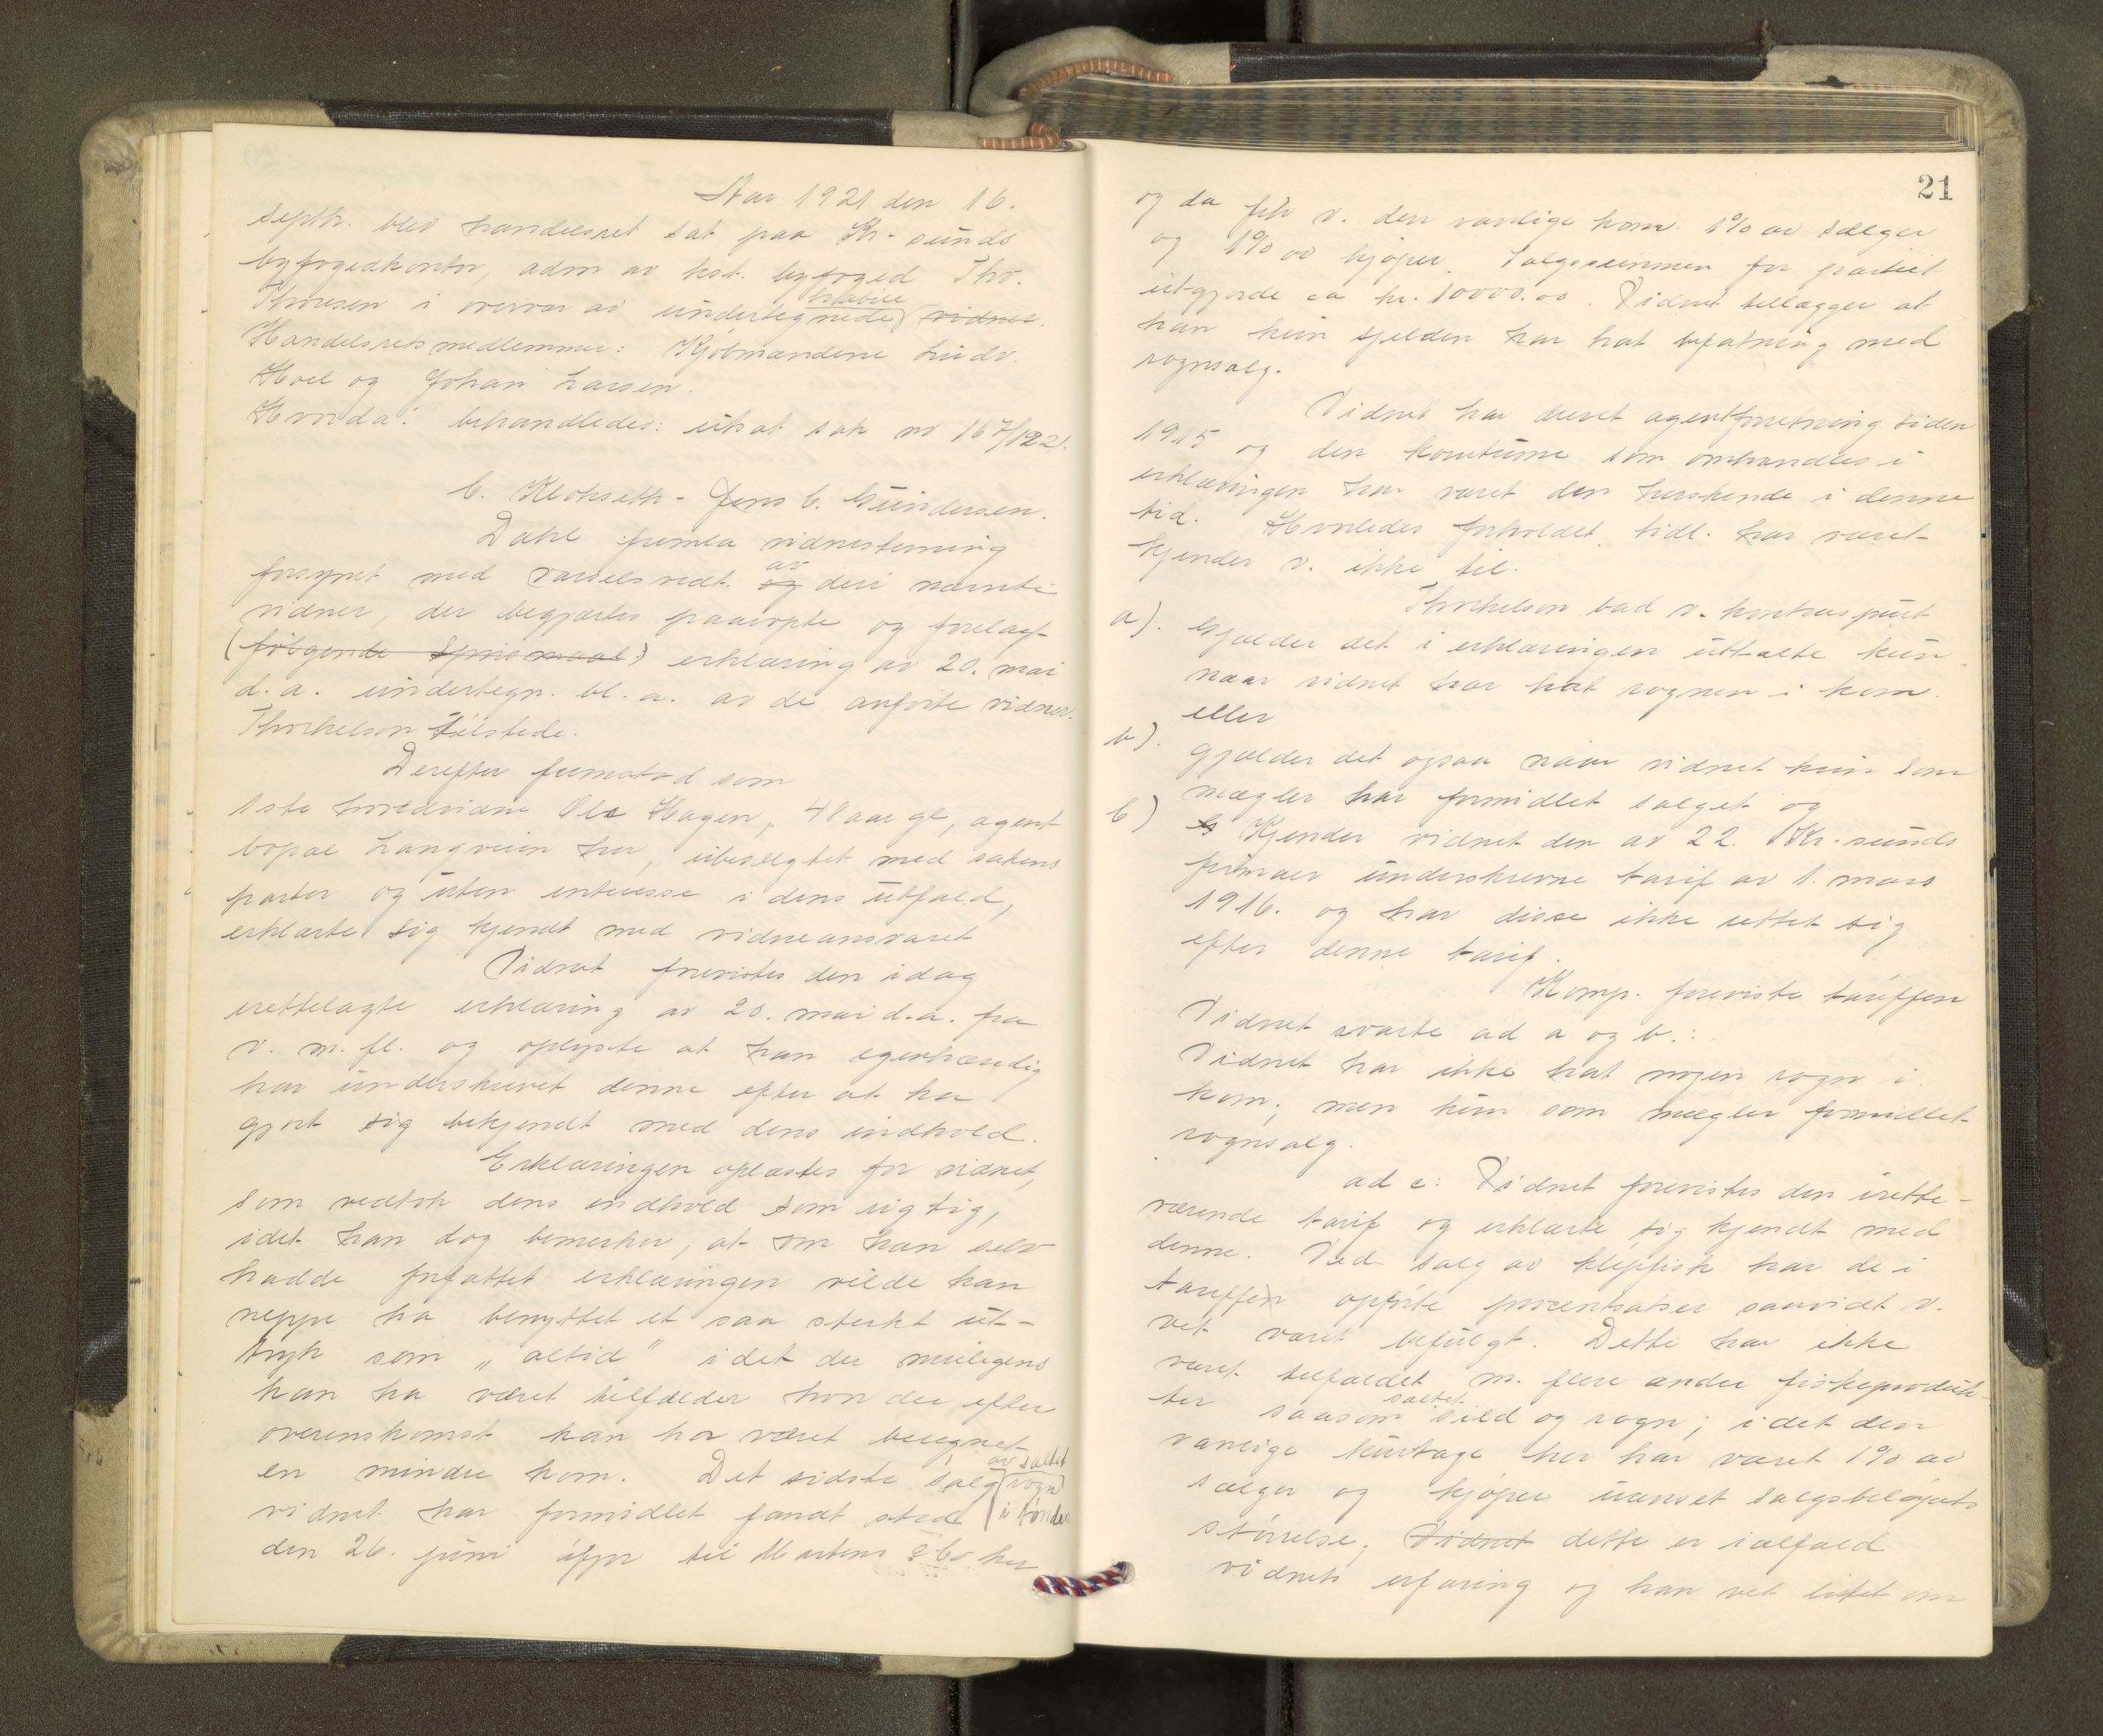 Aar 1921 den 16.
septbr. blev handelsret sat paa Kr.sunds
byfogedkontor, adm av kst. byfoged Thv.
Thoresen i overvær av undertegnede vidner.
Handelsretsmedlemmer: Kjøbmændene Ludv.
Hoel og Johan Larsen.
Hvorda: behandledes: utsat sak nr 167/1921.
C. Klokseth - Jens C. Gundersen.
Dahl fremla vidnestevning
forsynet med varselsvedt. og av deri nævnte
vidner, der begjærtes paaropte og forelagt
(følgende spørsmaal:) erklæring av 20. mai
d.a. undertegn. bl.a. av de anførte vidner.
Thorkelson tilstede.
Derefter fremstod som
1ste hovedvidne Ole Hagen, 48 aar gl, agent
bopæl Langveien her, ubeslegtet med sakens
parter og uten interesse i dens utfald,
erklærte sig kjendt med vidneansvaret
Vidnet forevistes den idag
irettelagte erklæring av 20. mai d.a. fra
v. m. fl. og oplyste at han egenhændig
har underskrevet denne efter at ha
gjort sig bekjendt med dens indhold.
Erklæringen oplæstes for vidnet,
som vedtok dens indhold som rigtig,
idet han dog bemerker, at om han selv
hadde forfattet erklæringen vilde han
neppe ha benyttet et saa sterkt ut-
tryk som "altid" idet der muligens
kan ha været tilfælder hvor der efter
overenskomst kan ha været beregnet
en mindre kom. Det sidste salg av saltet rogn
vidnet har formidlet fandt sted i tønder
den 26. juni ifjor til Martens & Co. her
21
og da fik v. den vanlige kom. 1% av sælger
og 1% av kjøper. Salgssummen for partiet
utgjorde ca kr. 10000.00. Vidnet tillægger at
han kun sjelden har hat befatning med
rognsalg.
Vidnet har drevet agentforretning siden
1915 og den koutume som omhandles i
erklæringen har været den herskende i denne
tid. Hvorledes forholdet tidl. har været
kjender v. ikke til.
Thorkelson bad v. kontraspurt
a). Gjælder det i erklæringen uttalte kun
naar vidnet har hat rognen i kom.
eller
b). gjælder det ogsaa naar vidnet kun som
mægler har formidlet salget og
c) Kjender vidnet den av 22. Kr.sunds
firmaer underskrevne tarif av 1. mars
1916. og har disse ikke rettet sig
efter denne tarif.
Komp. foreviste tariffen
Vidnet svarte ad a og b.:
Vidnet har ikke hat nogen rogn i
kom., men kun som mægler formidlet
rognsalg.
ad c: Vidnet forevistes den irette-
værende tarif og erklærte sig kjendt med
denne. Ved salg av klipfisk har de i
tariffen opførte procentsatser saavidt v.
vet været befulgt. Dette har ikke
været tilfældet m. flere andre fiskeproduk-
ter saasom saltet sild og rogn; idet den
vanlige kurtage her har været 1% av
sælger og kjøper uanset salgsbeløpets
størrelse; Vidnet dette er ialfald
vidnets erfaring og han vet litet om